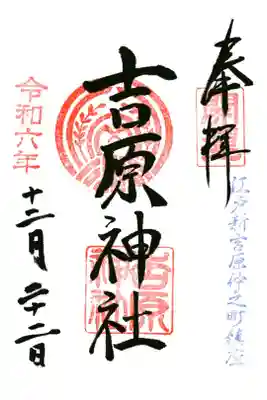 奉拝
江戸新吉原仲之町鎮座
吉原神社
令和六年
十二月二十二日